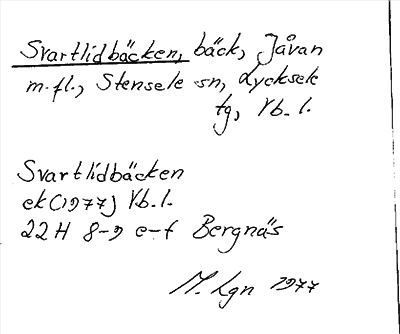 Svartlidbäcken, bäck, Jåvan
m.fl., Stensele sn, Lycksele
tg, Vb. l.
Svartlidbäcken
ek (1977) Vb. l.
22H 8-9 e-f Bergnäs
M. Lgn 1977